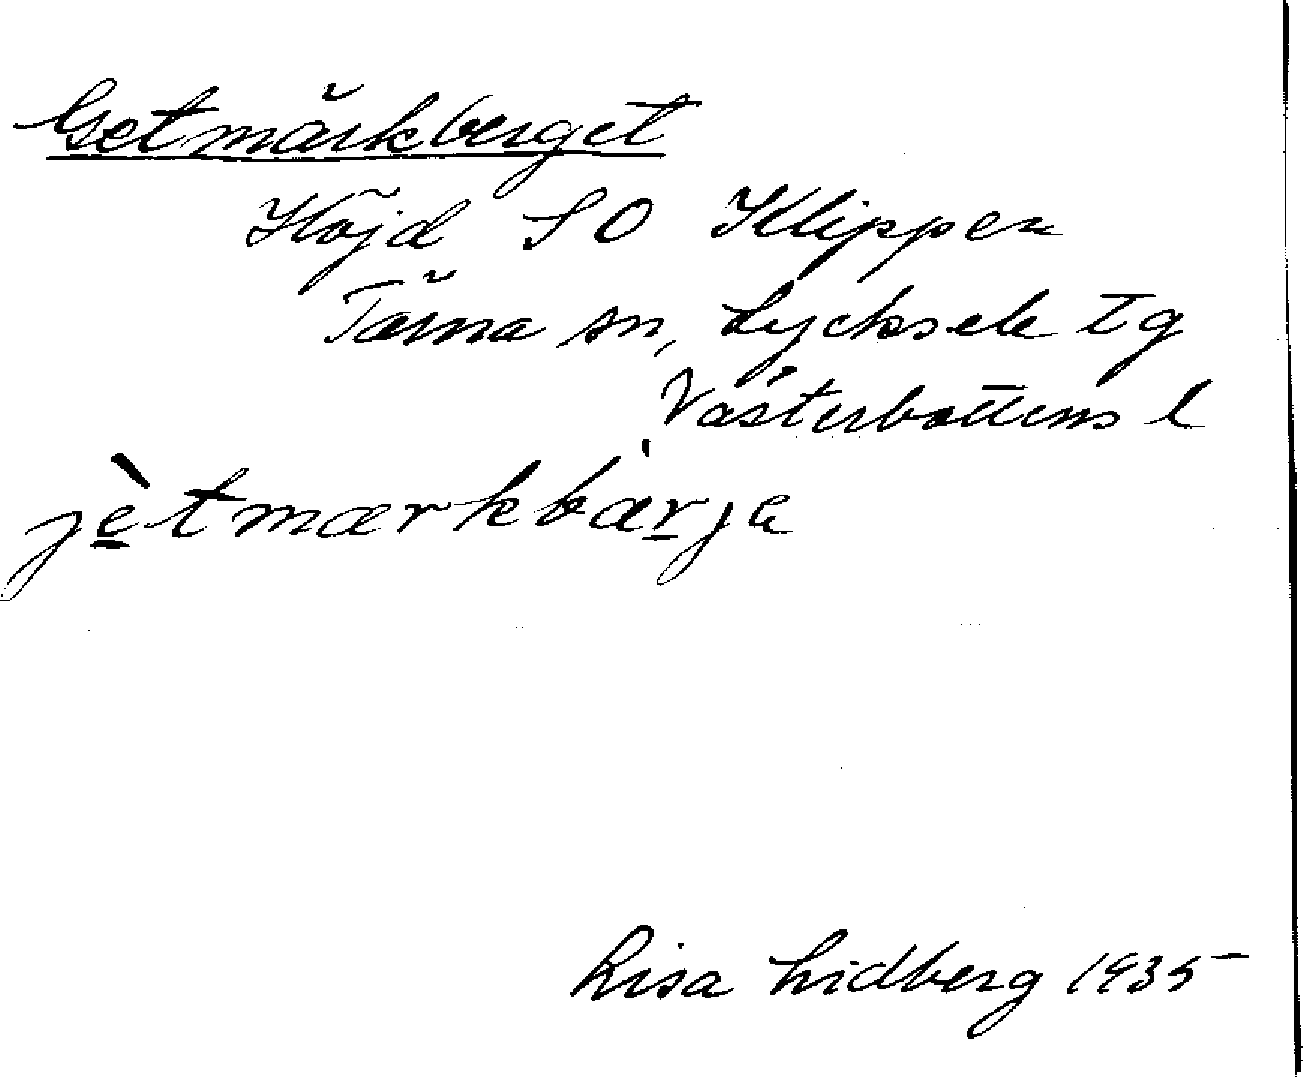 Getmärkberget
Höjd SO Klippen
Tärna sn, Lycksele tg
Västerbottens l
jètmærkbæ̀rja
Lisa Lidberg 1935